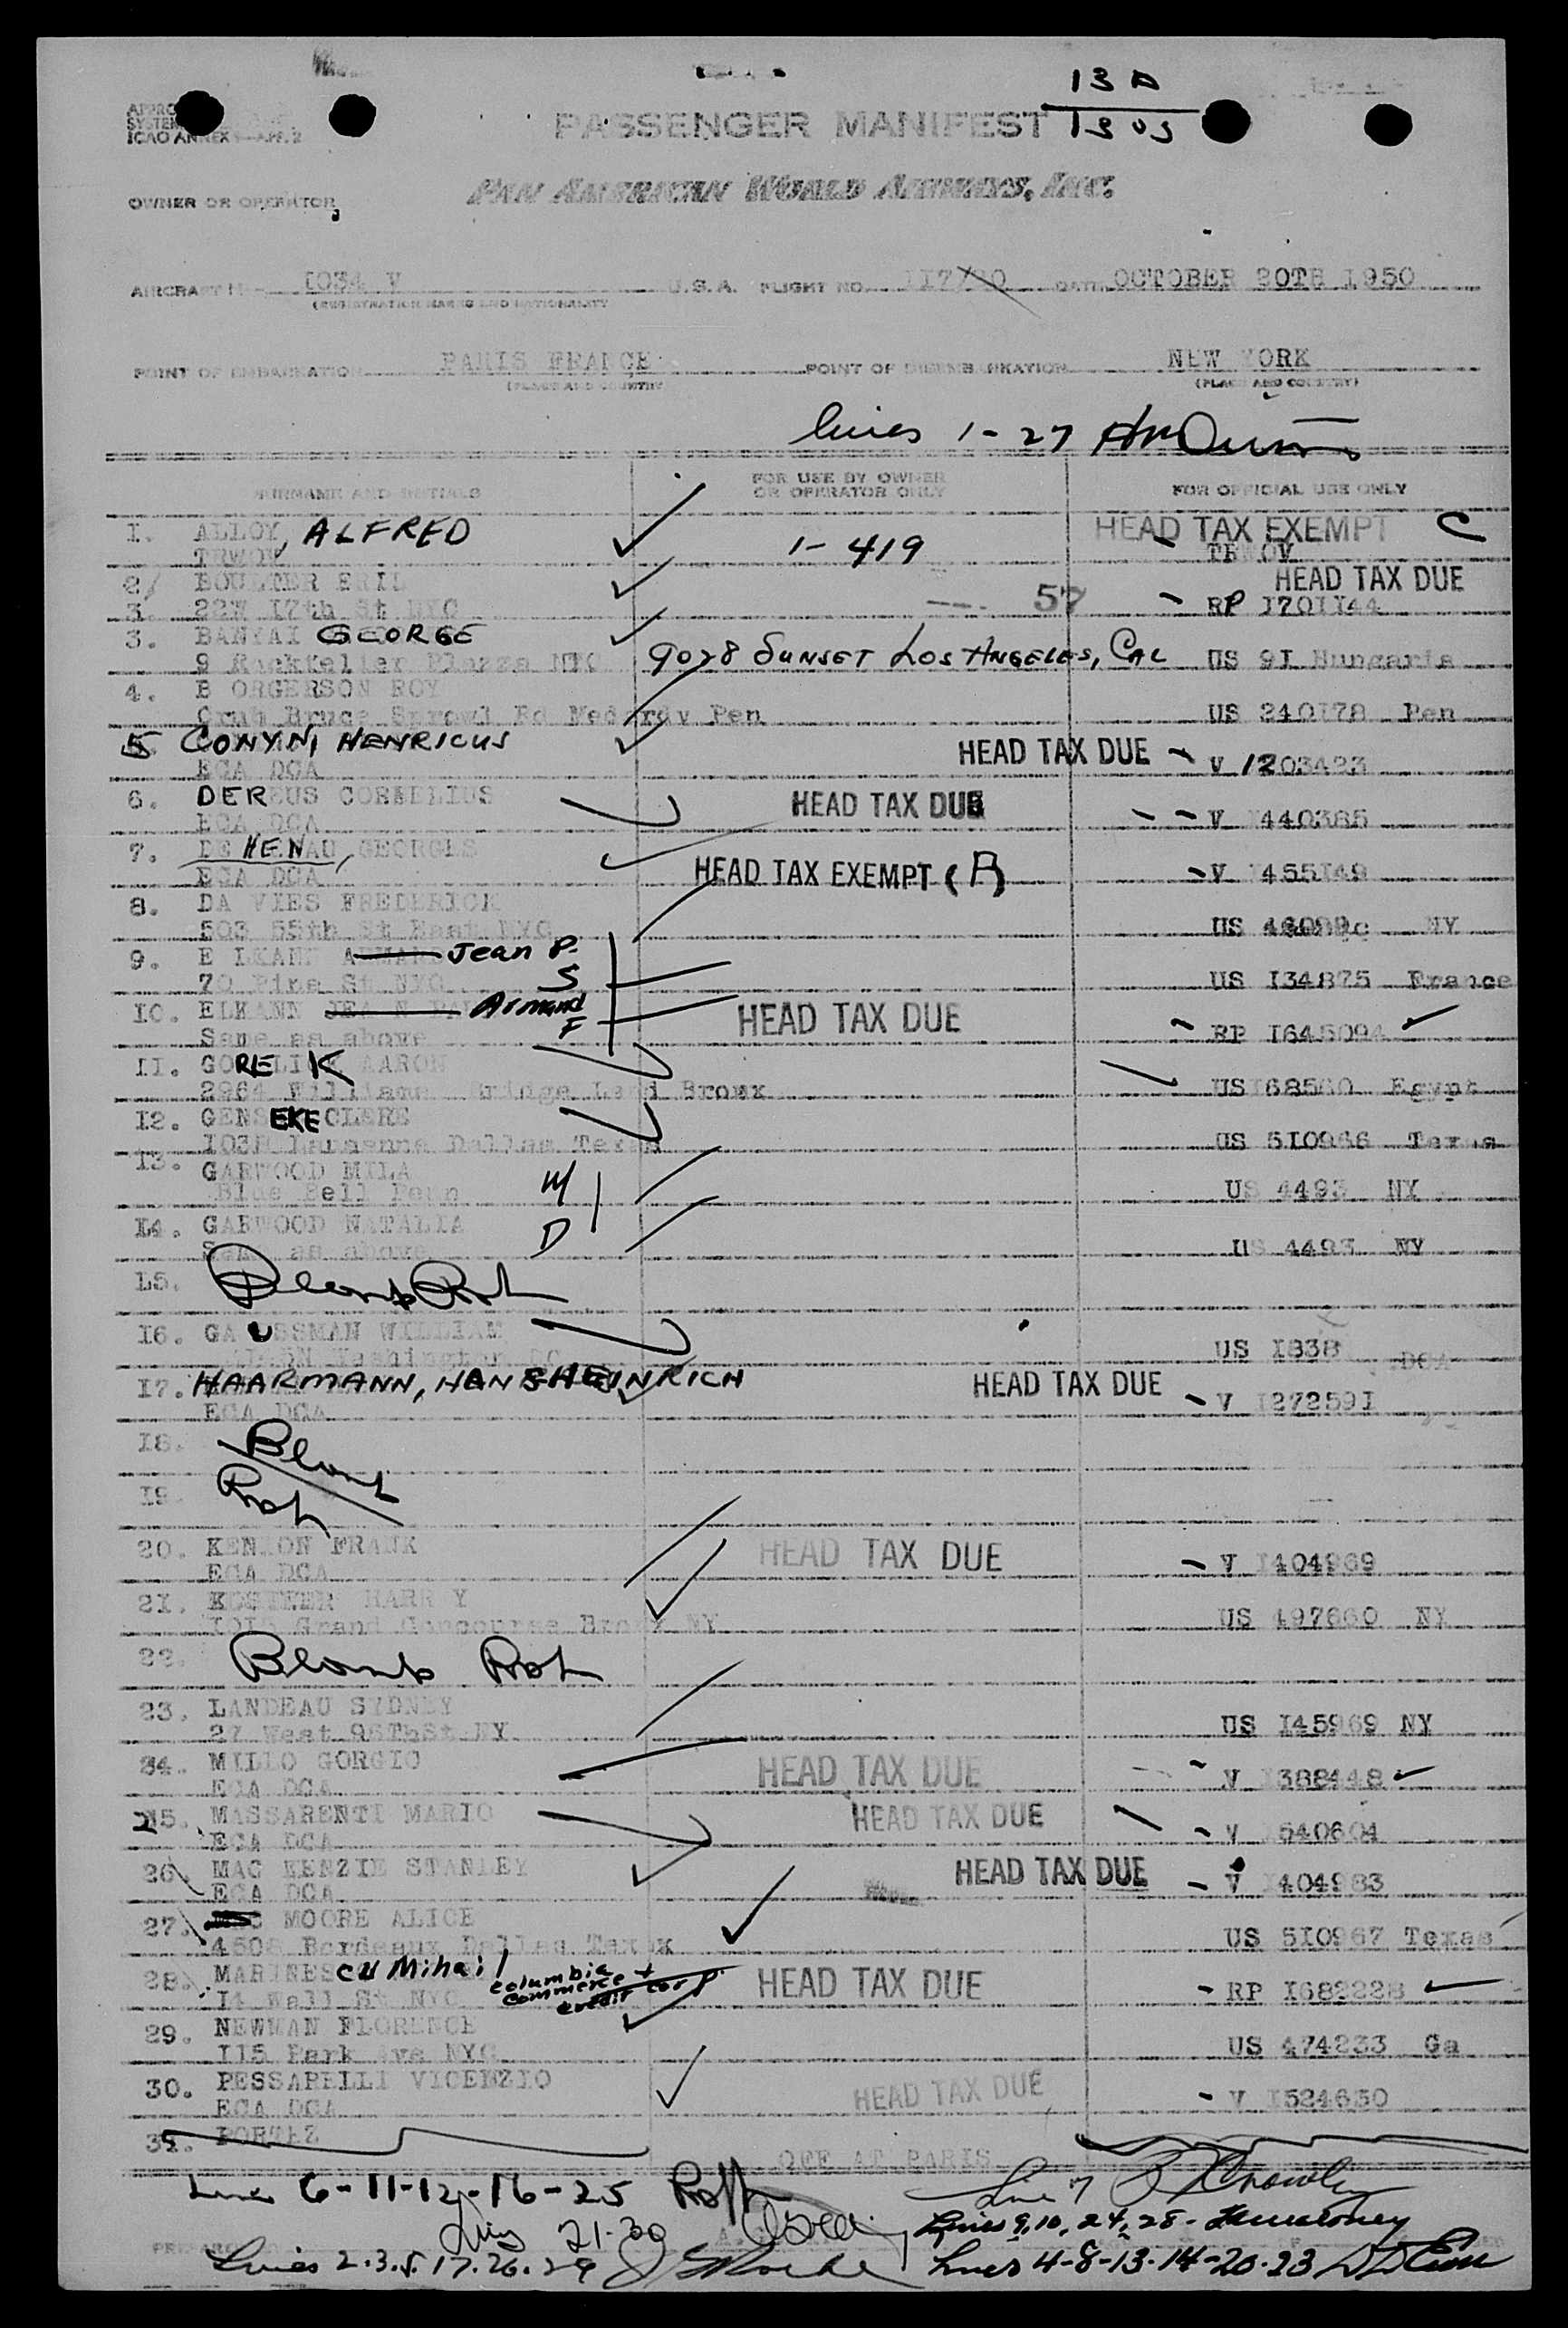 13 A
1303
APPRO
SYSTEM
ICAO ANNEX 9—APP. 2
PASSENGER MANIFEST
OWNER OR OPERATOR
PAN AMERICAN WORLD AIRWAYS, INC.
AIRCRAFT 1034 V U.S.A. FLIGHT NO. 117/ DATE OCTOBER 20TH 1950
(REGISTRATION MARKS AND NATIONALITY
POINT OF EMBARKATION PARIS FRANCE POINT OF DISEMBARKATION NEW YORK
(PLACE AND COUNTRY (PLACE AND COUNTRY)
lines 1-27
SURNAME AND INITIALS FOR USE BY OWNER OR OPERATOR ONLY FOR OFFICIAL USE ONLY
1. ALLOY, ALFRED 1-419 HEAD TAX EXEMPT C
TRWOV TRWOV
2/ BOULTER ERIC HEAD TAX DUE
3. 22W 17th St NYC 57 RP 1701144
3. BANYAI GEORGE
9 Rockfeller Plazza NYC 9028 SUNSET LOS ANGELES, CAL US 91 Hungaria
4. B ORGERSON ROY
Bruce Rd Pen US 240178 Pen
5 CONYN, HENRICUS HEAD TAX DUE
ECA DCA V 1203423
6. DEREUS CORNELIUS HEAD TAX DUE
ECA DCA V 440385
7. DE HENAU, GEORGES
ECA DCA HEAD TAX EXEMPT (A) V 455149
8. DA VIES FREDERICK
503 55th St East NYC US NY
9. E LKANN Jean P.
70 Pine St NYC S US 134875 France
10. ELKANN Armand HEAD TAX DUE
Same as above F RP 1645094
11. GORELICK AARON
2964 Williams Bridge Bronx US 168560 Egypt
12. GENSEKE CLARE
Dallas Texas US 510966 Texas
13. GARWOOD MILA W
Blue Bell Penn US 4493 NY
14. GARWOOD NATALIA D
Same as above US 4493 NY
15. Blank Roth
16. GAUSSMAN WILLIAM
Washington DC US 1838 DCA
17. HAARMANN, HANSHEINRICH HEAD TAX DUE
ECA DCA V 1272591
18. Blank
19. Roth
20. KENYON FRANK HEAD TAX DUE
ECA DCA V 1404969
21. HARR Y
1015 Grand Concourse Bronx NY US 497660 NY
22. Blank Roth
23. LANDEAU SYDNEY
27 West 96ThSt NY US 145969 NY
24. MILLO GORGIO HEAD TAX DUE
ECA DCA V 388448
25. MASSARENTI MARIO HEAD TAX DUE
ECA DCA V 540604
26. MAC KENZIE STANLEY HEAD TAX DUE
ECA DCA V 404983
27. MOORE ALICE
4508 Bordeaux Dallas Texax US 510967 Texas
28. MARINESCU Mihail Columbia Commerce + Credit Corp. HEAD TAX DUE
14 Wall St NYC RP 1682228
29. NEWMAN FLORENCE
115 Park Ave NYC US 474233 Ga
30. PESSARELLI VICENZIO HEAD TAX DUE
ECA DCA V 1524630
31. PORTEZ
OFF AT PARIS
Lines 6-11-12-16-25 Roth Line 7
Lines 21-30 Lines 9, 10, 24, 28-
PREPARED
Lines 2.3.5.17.26.29 Lines 4-8-13-14-20-23